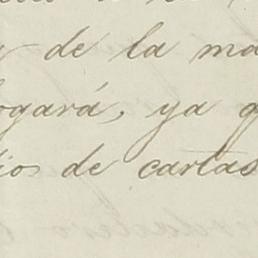 de la ma
ogará, ya q
ios de cartas